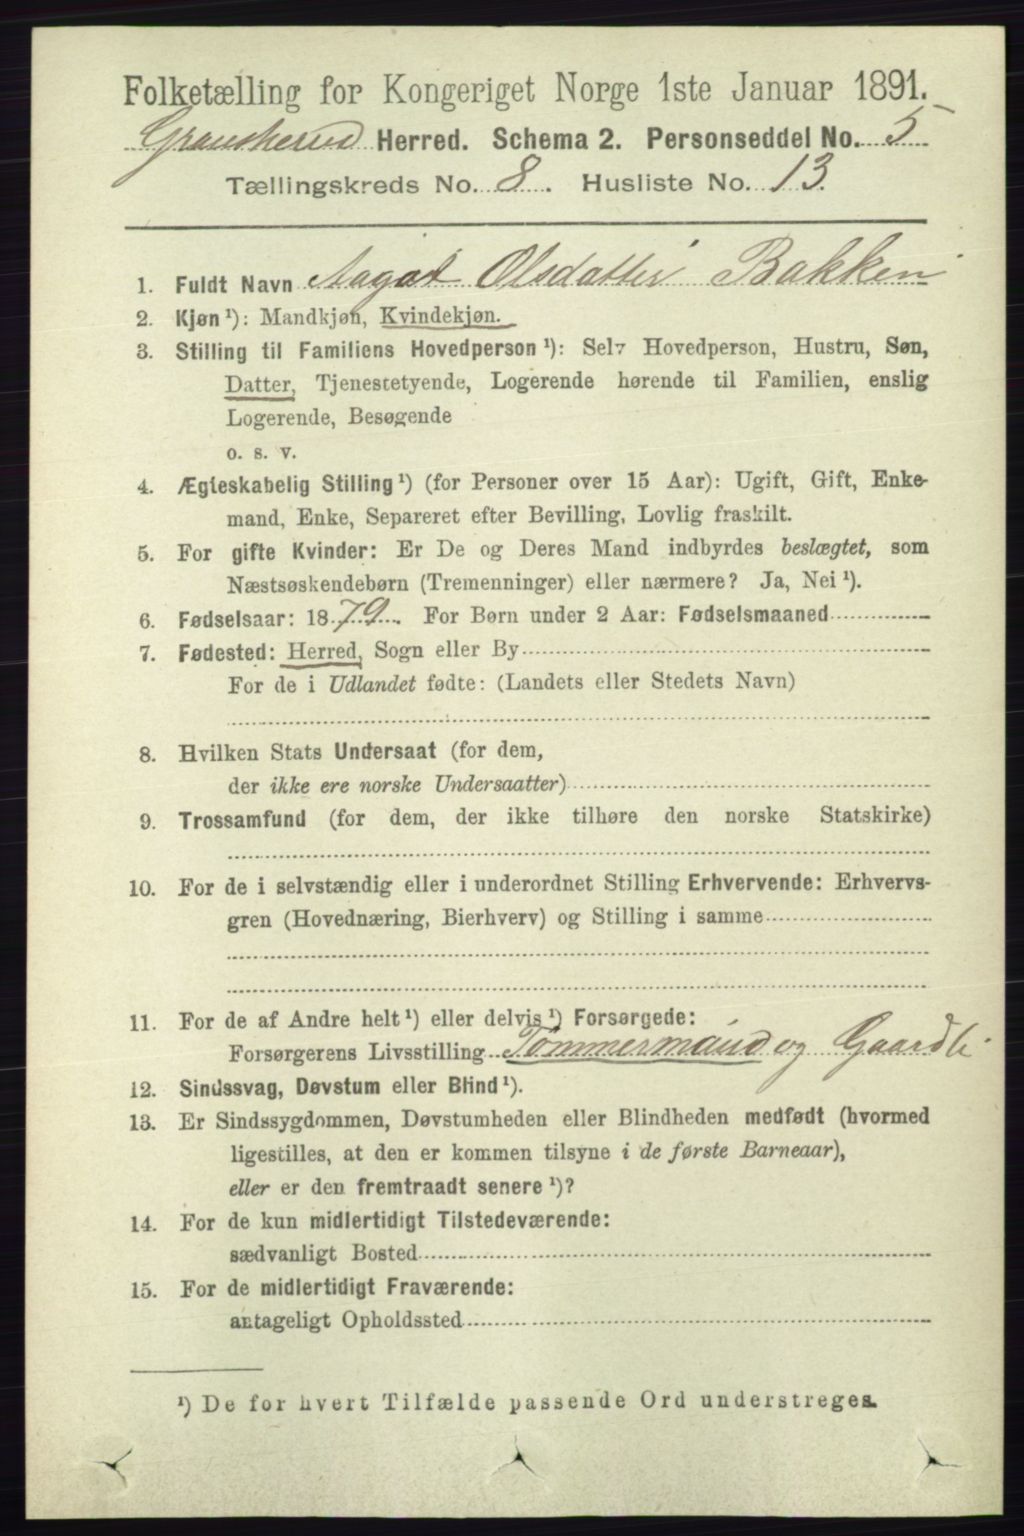 Folketælling for Kongeriget Norge 1ste Januar 1891.
Gransherud Herred. Schema 2. Personseddel No. 5
Tællingskreds No. 8. Husliste No. 13.
1. Fuldt Navn Aagot Olsdatter Bakken
2. Kjøn ¹): Mandkjøn, Kvindekjøn.
3. Stilling til Familiens Hovedperson ¹): Selv Hovedperson, Hustru, Søn,
Datter, Tjenestetyende, Logerende hørende til Familien, enslig
Logerende, Besøgende
o. s. v.
4. Ægteskabelig Stilling ¹) (for Personer over 15 Aar): Ugift, Gift, Enke-
mand, Enke, Separeret efter Bevilling, Lovlig fraskilt.
5. For gifte Kvinder: Er De og Deres Mand indbyrdes beslægtet, som
Næstsøskendebørn (Tremenninger) eller nærmere? Ja, Nei ¹).
6. Fødselsaar: 1879. For Børn under 2 Aar: Fødselsmaaned
7. Fødested: Herred, Sogn eller By
For de i Udlandet fødte: (Landets eller Stedets Navn)
8. Hvilken Stats Undersaat (for dem,
der ikke ere norske Undersaatter)
9. Trossamfund (for dem, der ikke tilhøre den norske Statskirke)
10. For de i selvstændig eller i underordnet Stilling Erhvervende: Erhvervs-
gren (Hovednæring, Bierhverv) og Stilling i samme
11. For de af Andre helt ¹) eller delvis ¹) Forsørgede:
Forsørgerens Livsstilling Tømmermand og Gaardb.
12. Sindssvag, Døvstum eller Blind ¹).
13. Er Sindssygdommen, Døvstumheden eller Blindheden medfødt (hvormed
ligestilles, at den er kommen tilsyne i de første Barneaar),
eller er den fremtraadt senere ¹)?
14. For de kun midlertidigt Tilstedeværende:
sædvanligt Bosted
15. For de midlertidigt Fraværende:
antageligt Opholdssted
¹) De for hvert Tilfælde passende Ord understreges.